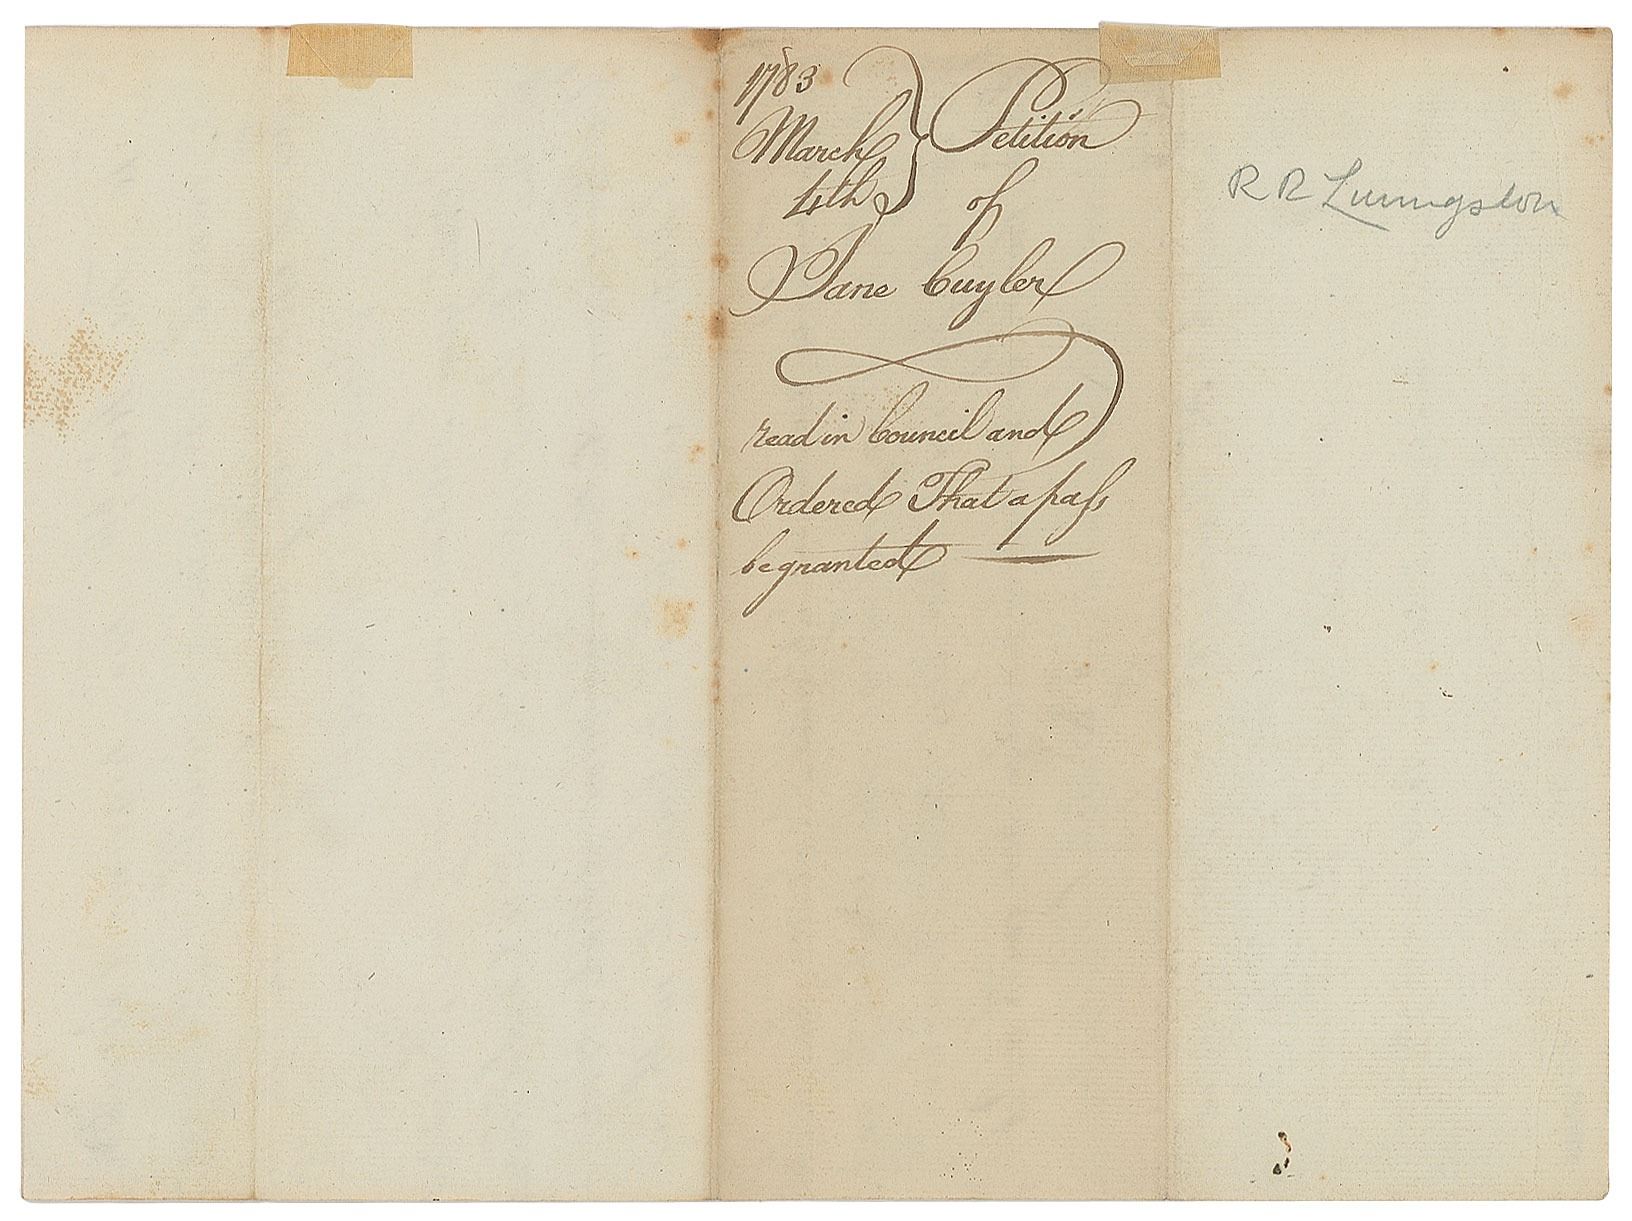 1783
March
4th
} Petition
of
Jane Cuyler
read in Council and
Ordered That a paſs
be granted
R R Livingston